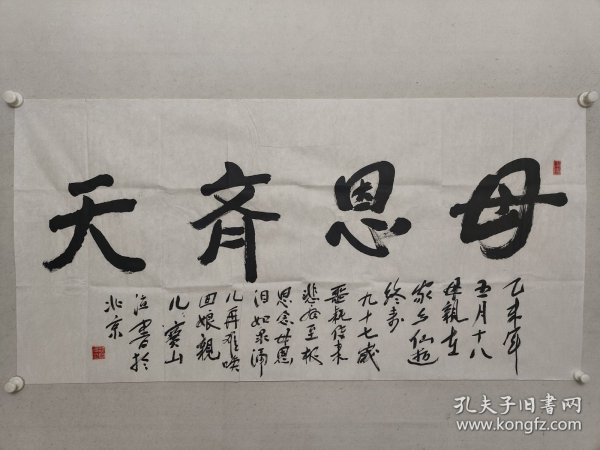 母恩齐天
乙未年
五月十八
母親在
家乡仙逝
终寿
九十七歲
恶耗传来
悲安至极
思念母恩
泪如泉沸
儿再难唤
回娘親
儿宝山
泣書於
北京
孔夫子旧書网
www.kongfz.com